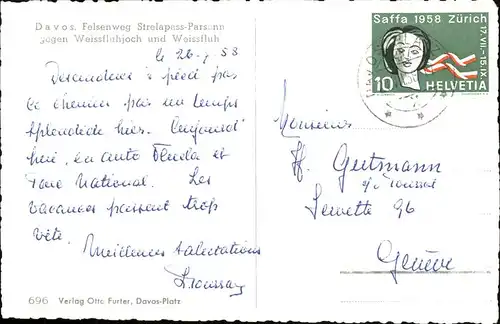 Davos. Felsenweg Strelapass-Parsenn
gegen Weissfluhjoch und Weissfluh
le 26-7 58
Descendons à pied par
ce chemin par un temps
splendide hier. Aujourd'
hui, en auto Fluela et
Parc National. Les
vacances passent trop
vite.
Meilleures salutations
Saffa 1958 Zürich
17.VII.-15.IX.
10 HELVETIA
Monsieur
H. Gutmann
Servette 96
Genève
696 Verlag Otto Furter, Davos-Platz